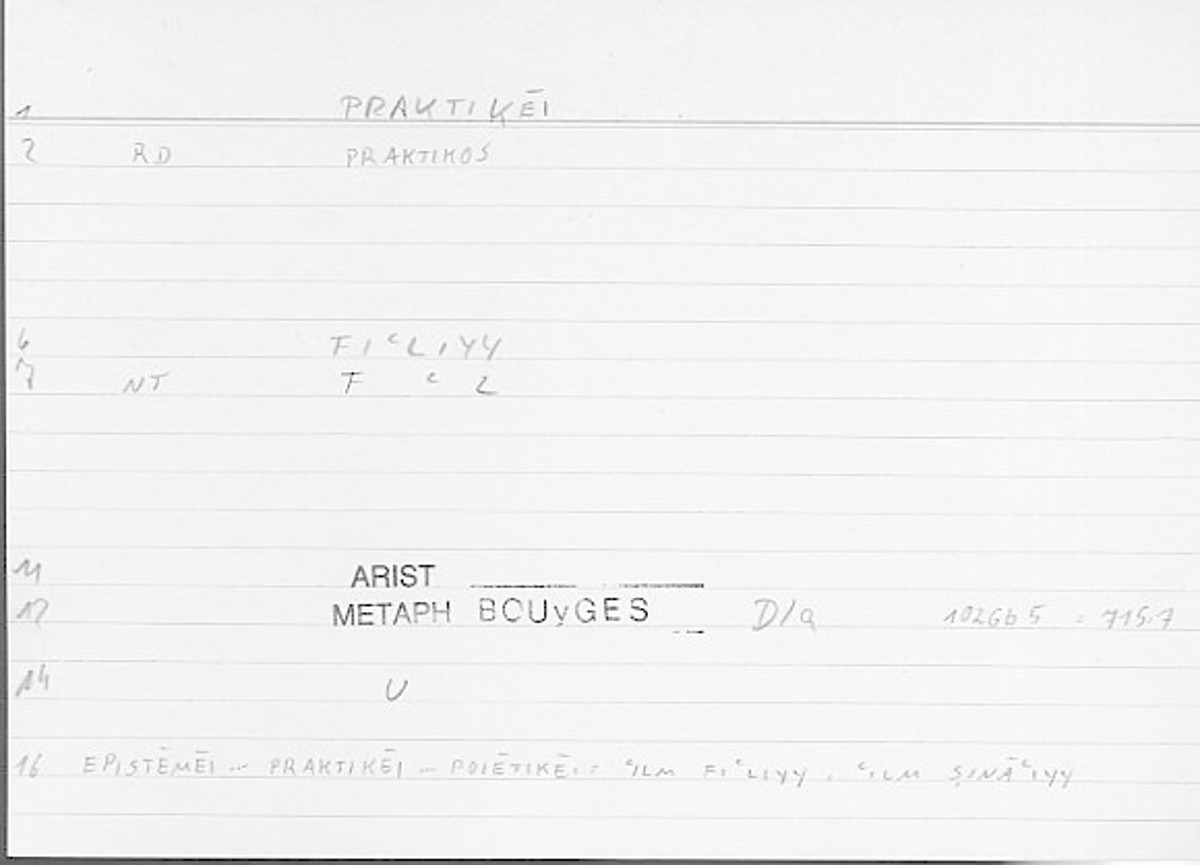 1 PRAKTIḲĒI
2 RD PRAKTIKOS
6 FIʿLIYY
7 NT F ʿ L
11 ARIST
12 METAPH BOUyGES D/a 1026b5 = 715.7
14 U
16 EPISTĒMĒI … PRAKTIKĒI … POIĒTIKĒI = ʿILM FIʿLIYY . ʿILM ṢINĀʿIYY